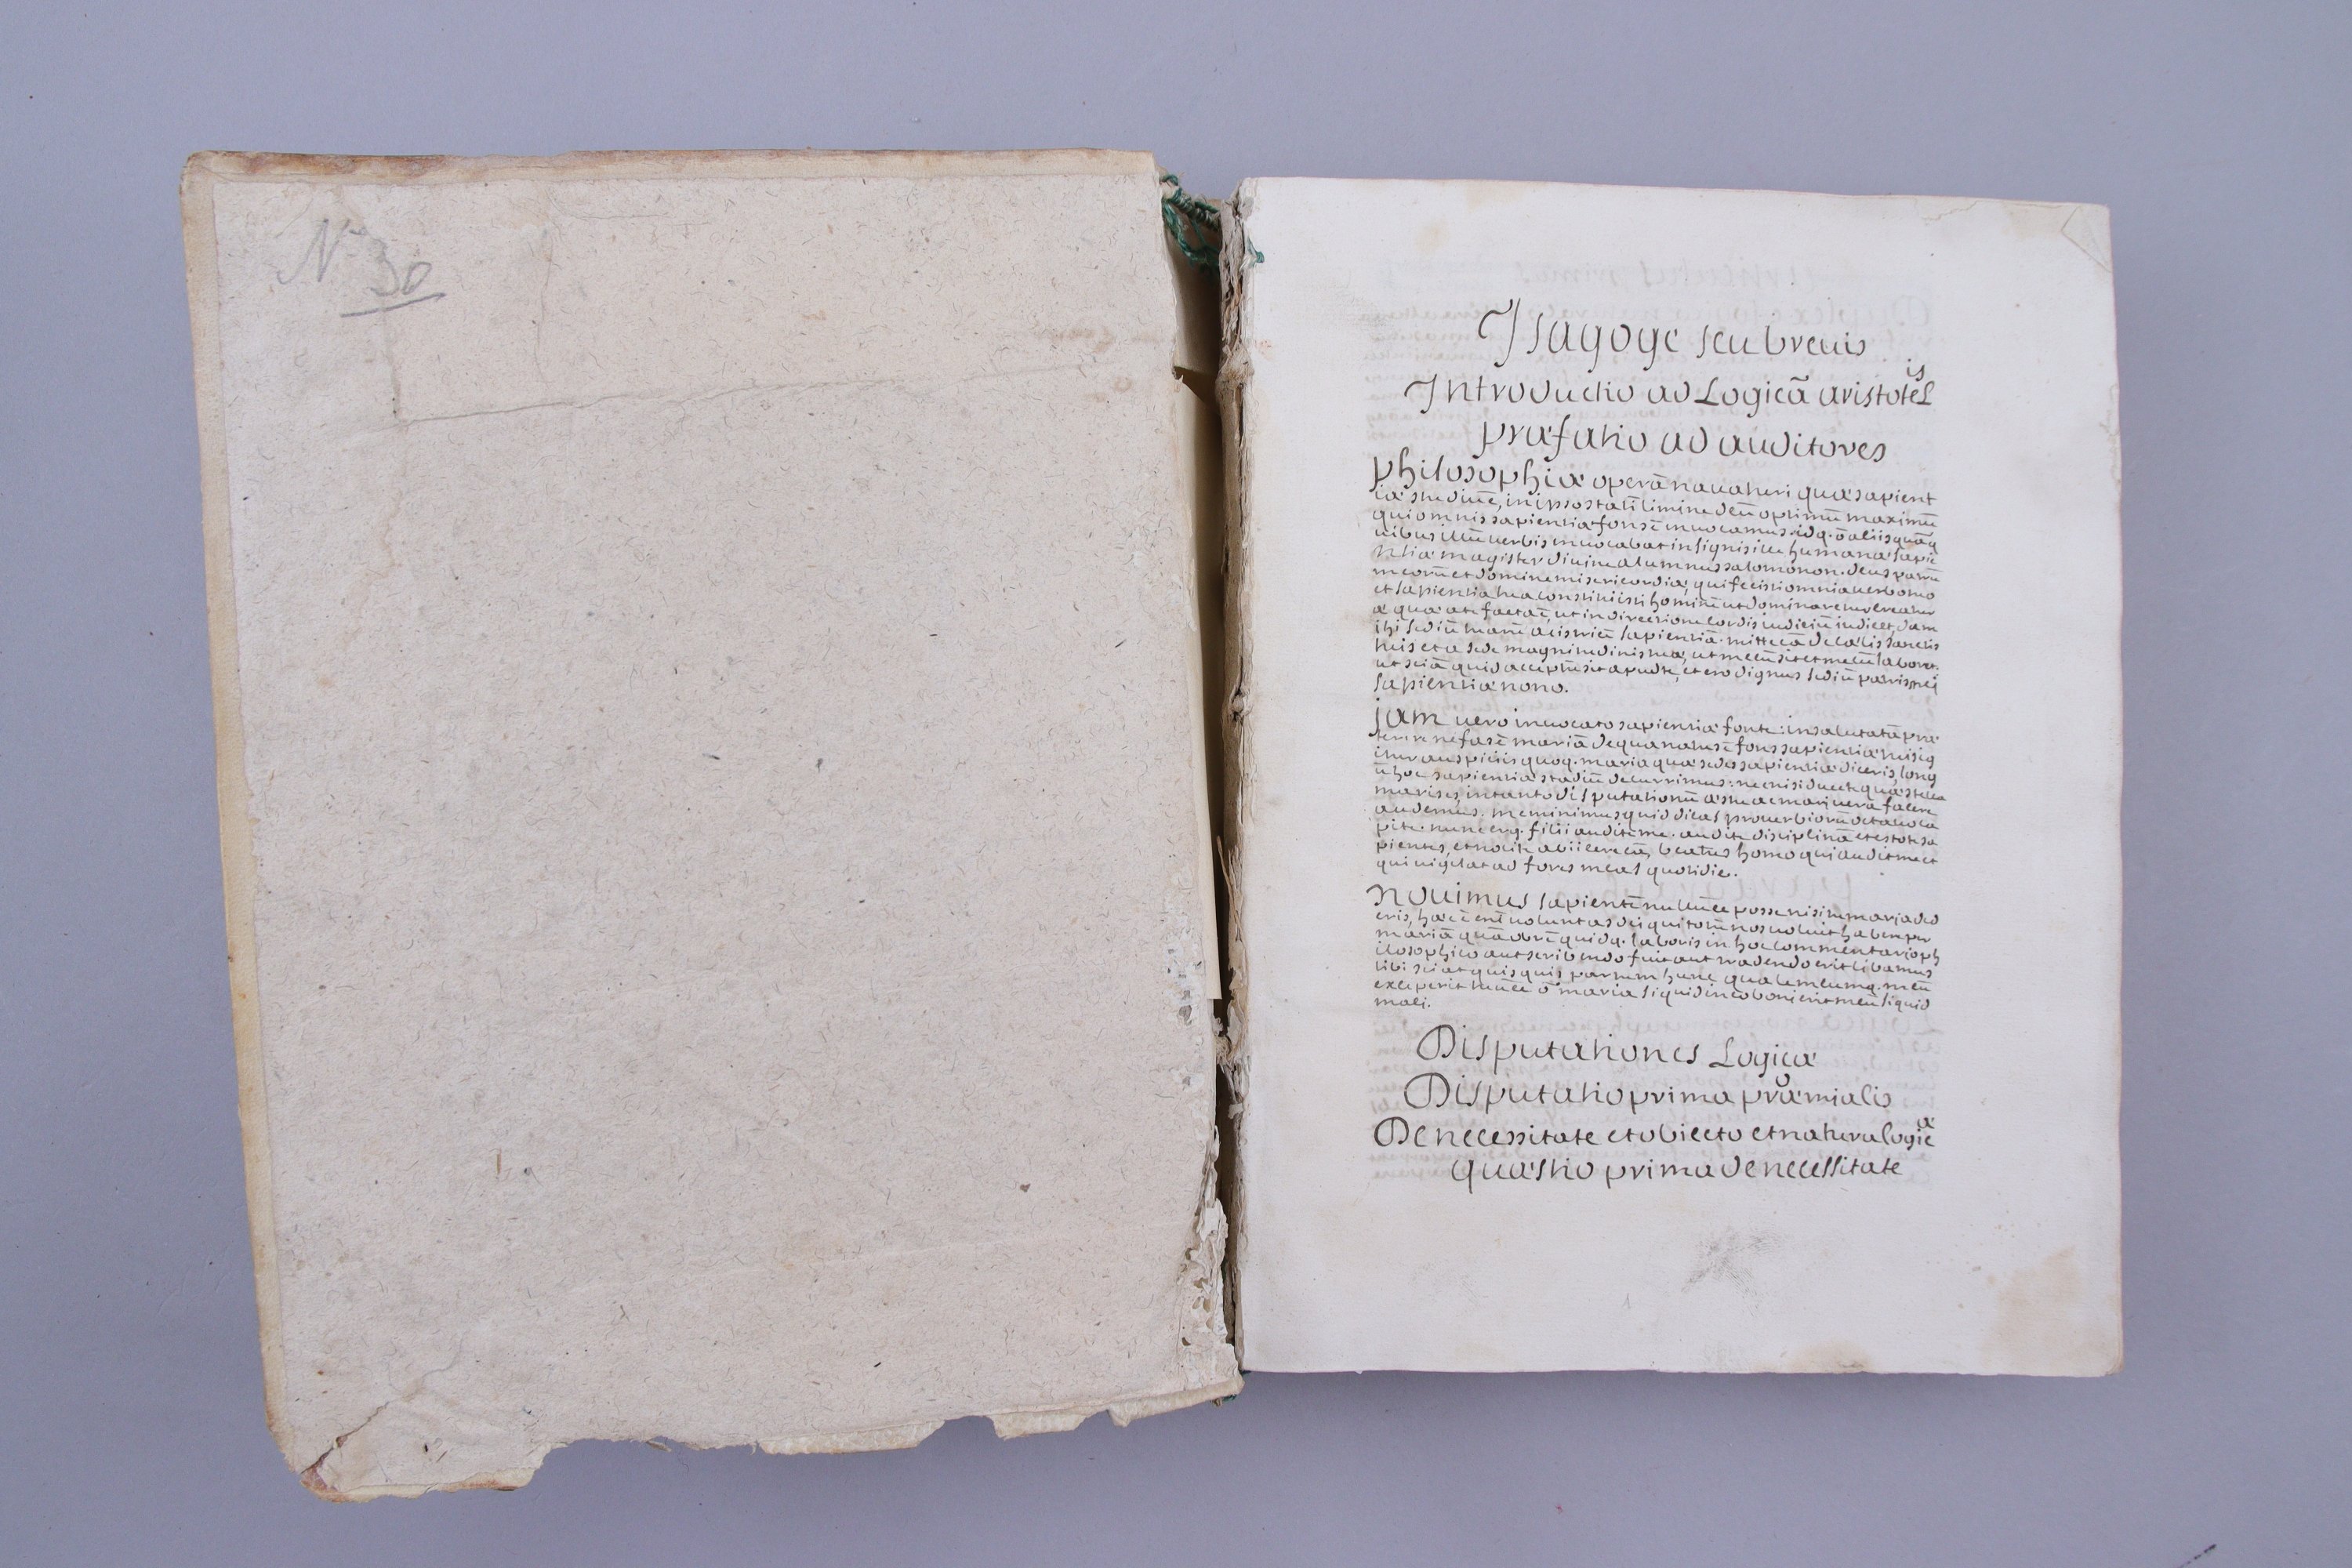 N 30
Isagoge seu brevis
Introductio ad Logicã aristotelis
præfatio ad auditores
philosophiæ operã navaturi quæ sapient
iæ studiũ ẽ, in ipso statĩ limine deũ optimũ maximũ
qui omnis sapientiæ fons ẽ invocamus. idq. õ aliis quã q
uibus illũ verbis invocabat insignis ille humanæ sapie
ntiæ magister divinæ alumnus salomonon. deus patrũ
meorũ et domine misericordiæ, qui fecisti omnia verbo tuo
et sapientia tua constituisti hominẽ ut dominaretur creatur
æ quæ a te facta ẽ, ut in directione cordis iudiciũ iudicet, da m
ihi sediũ tuarũ acistricẽ sapientiã. mitte eã de cælis sanctis
tuis et a sede magnitudinis tuæ, ut mecũ sit et mecũ laboret.
ut sciã quid acceptũ sit apud te, et ero dignus sediũ patris mei
sapientiæ nono.
jam vero invocato sapientiæ fonte: insalutatã præ
terire nefas ẽ mariã de qua natus ẽ fons sapientiæ
itur auspiciis quoq. maria quæ sedes sapientiæ diceris, long
ũ hoc sapientiæ stadiũ decurrimus: nec nisi duce te quæ stella
maris es, in tanto disputationũ æstu ac mari vera facere
audemus. meminimus quid dicas proverbiorũ octavo ca
pite. nunc erg. filii audite me. audite disciplinã et estote sa
pientes, et nolite abiicere eã, beatus homo qui audit me et
qui vigilat ad fores meas quotidie.
novimus sapientẽ nullũ ẽe posse nisi tu maria ded
eris, hæc ẽ enĩ voluntas dei qui totũ nos voluit habere per
mariã quã obrẽ quidq. laboris in hoc commentario ph
ilosophico aut scribendo fuit aut tradendo erit libamus
tibi sciat quisquis partum hunc qualemcumq. meũ
exceperit tuũ ẽe õ maria si quid in eo boni erit meũ si quid
mali.
Disputationes Logicæ
Disputatio prima proæmialis
De necessitate et obiecto et natura logicæ
quæstio prima de necessitate
1